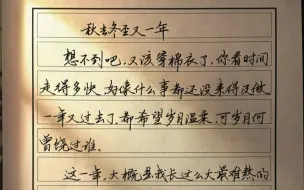 秋去冬至又一年
想不到吧，又该穿棉衣了，你看时间
走得多快。好像什么事都还没来得及做，
一年又过去了。都希望岁月温柔，可岁月何
曾绕过谁。
这一年，大概是我长这么大最难熬的